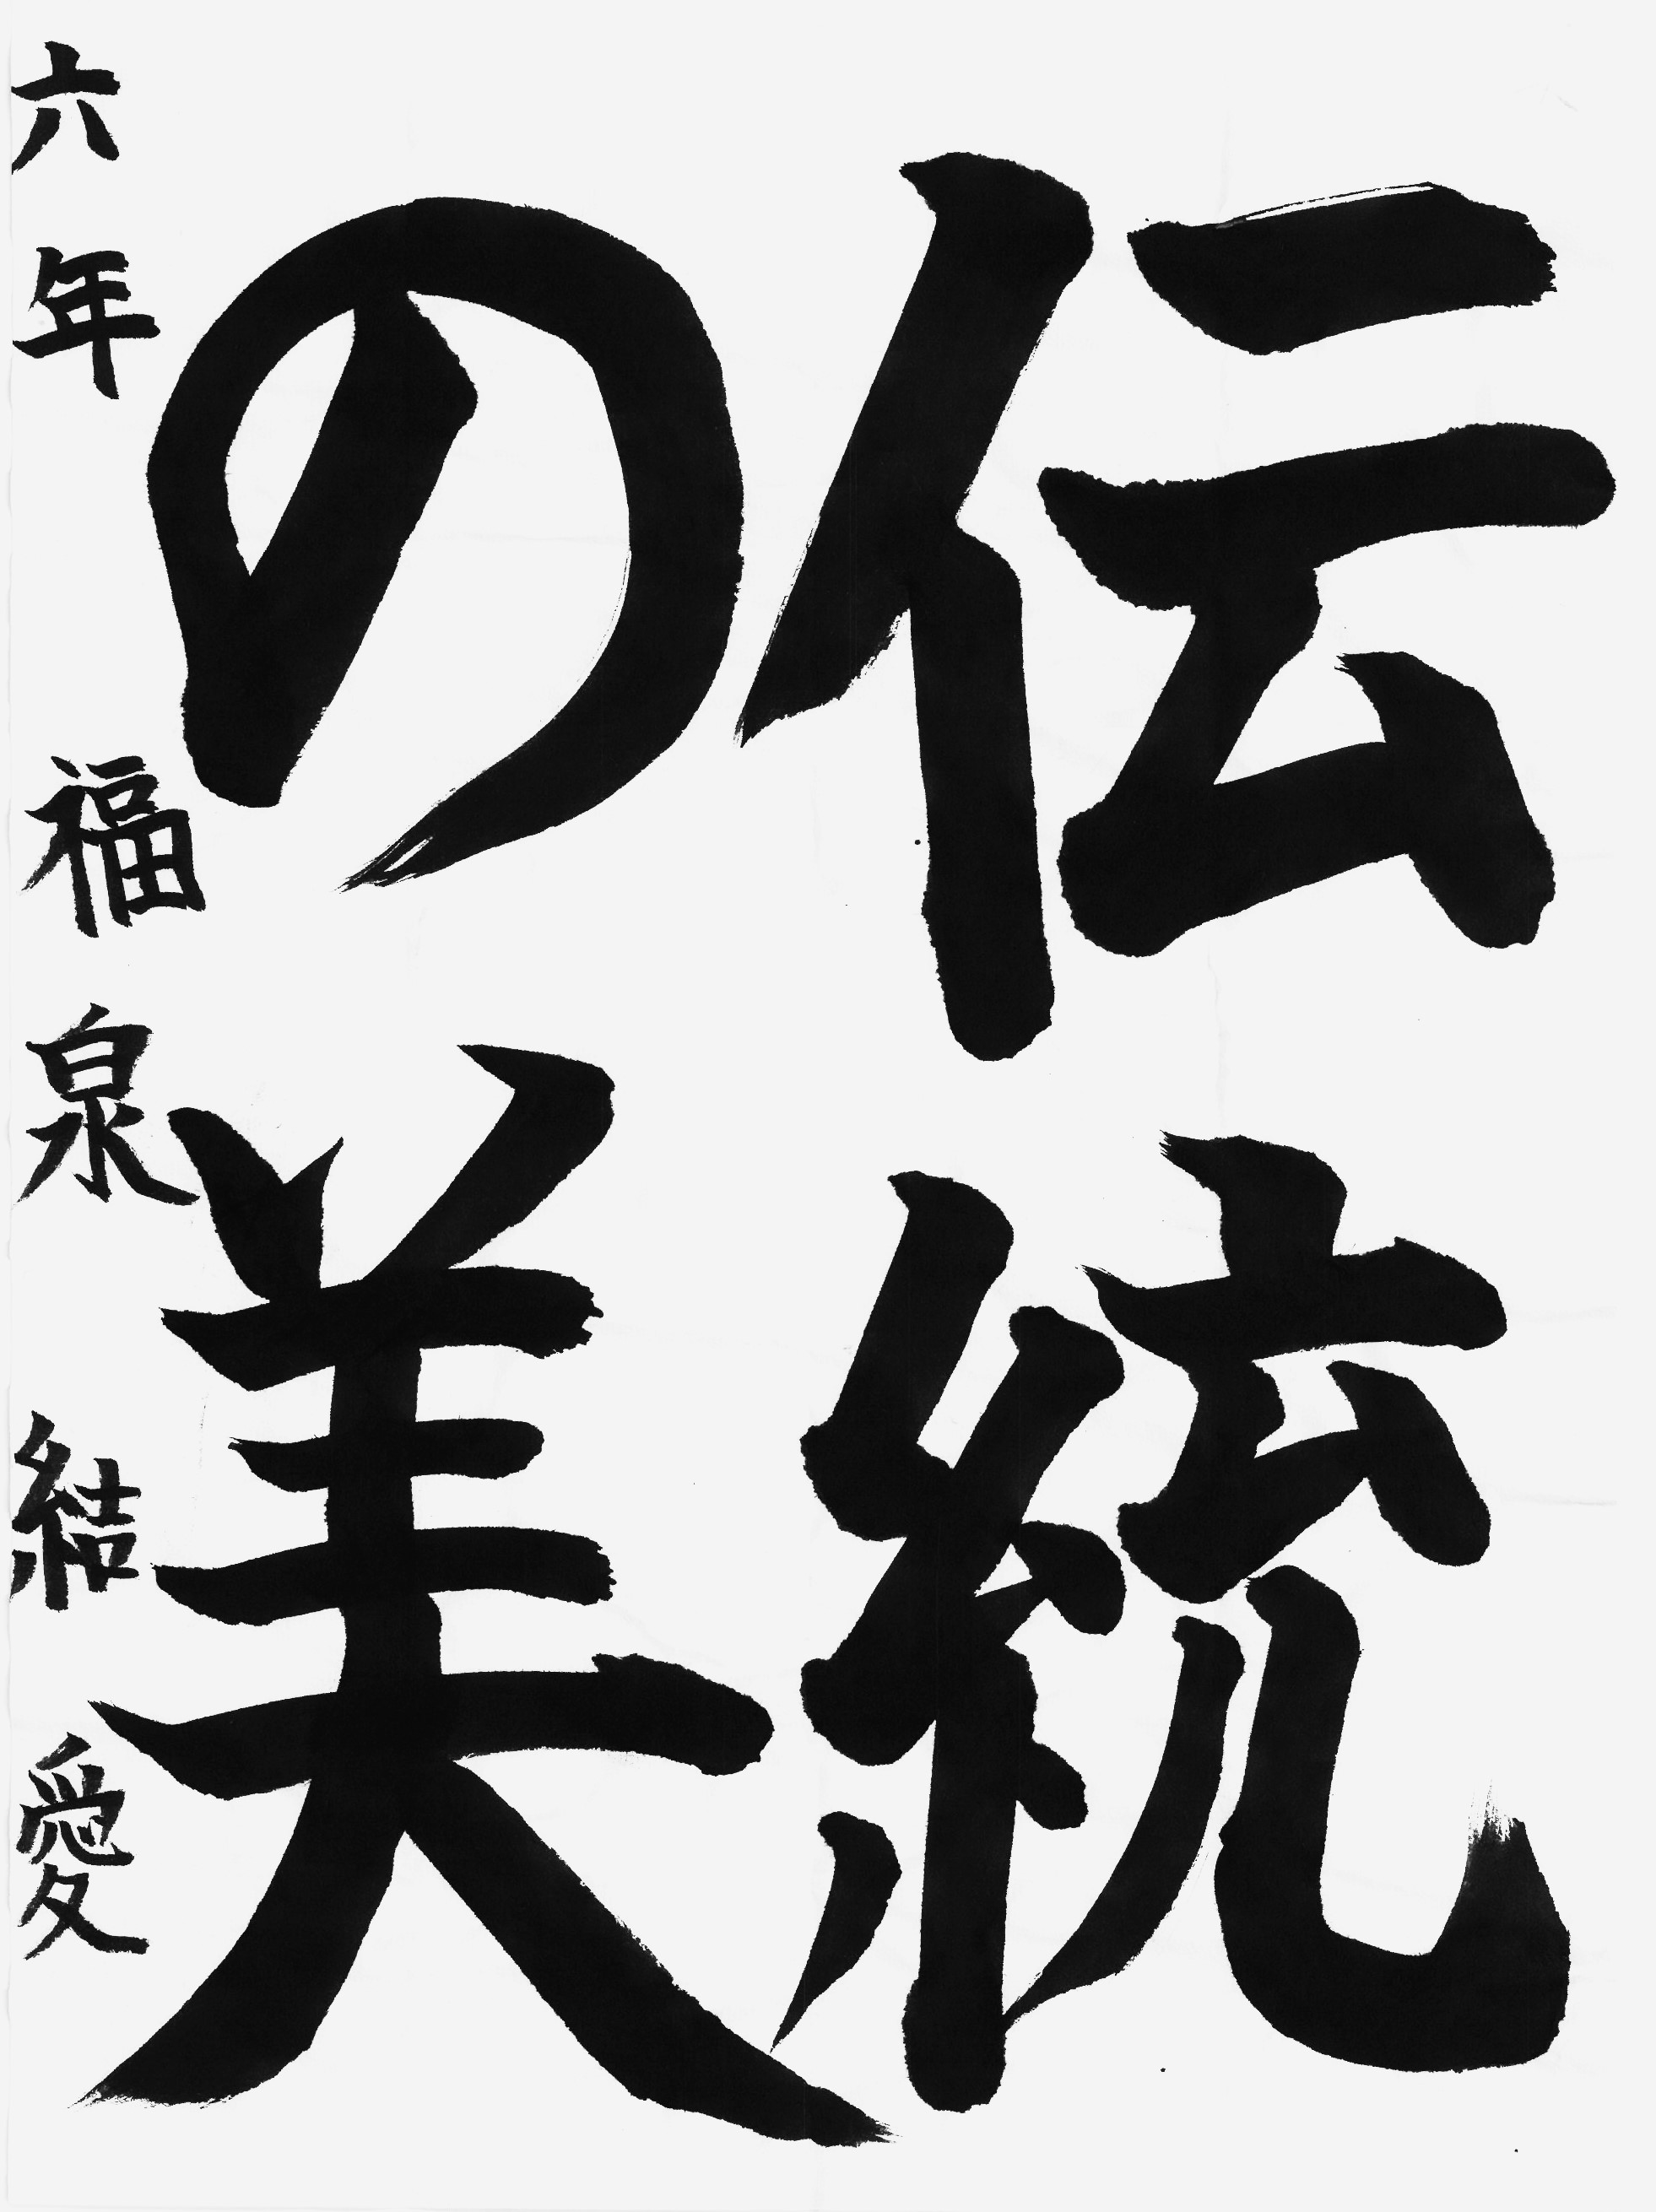 伝統
の美
六年 福泉 結愛